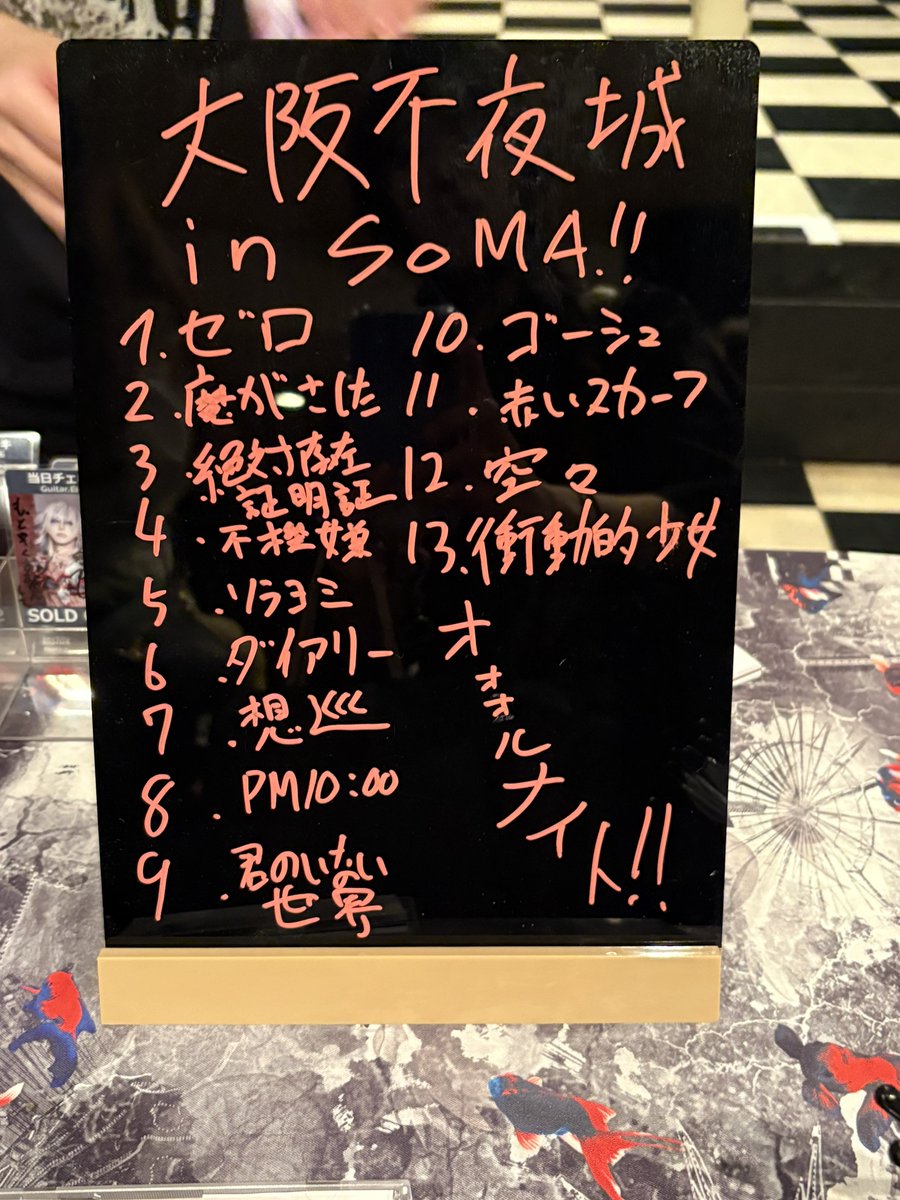 大阪不夜城
in SoMA!!
1.ゼロ
2.魔がさした
3.絶対存在
証明証
4.不機嫌
5.ソラヨミ
6.ダイアリー
7.想巡
8.PM10:00
9.君のいない
世界
10.ゴーシュ
11.赤いスカーフ
12.空々
13.衝動的少女
オォオルナイト!!
当日チェ
Guitar.
SOLD